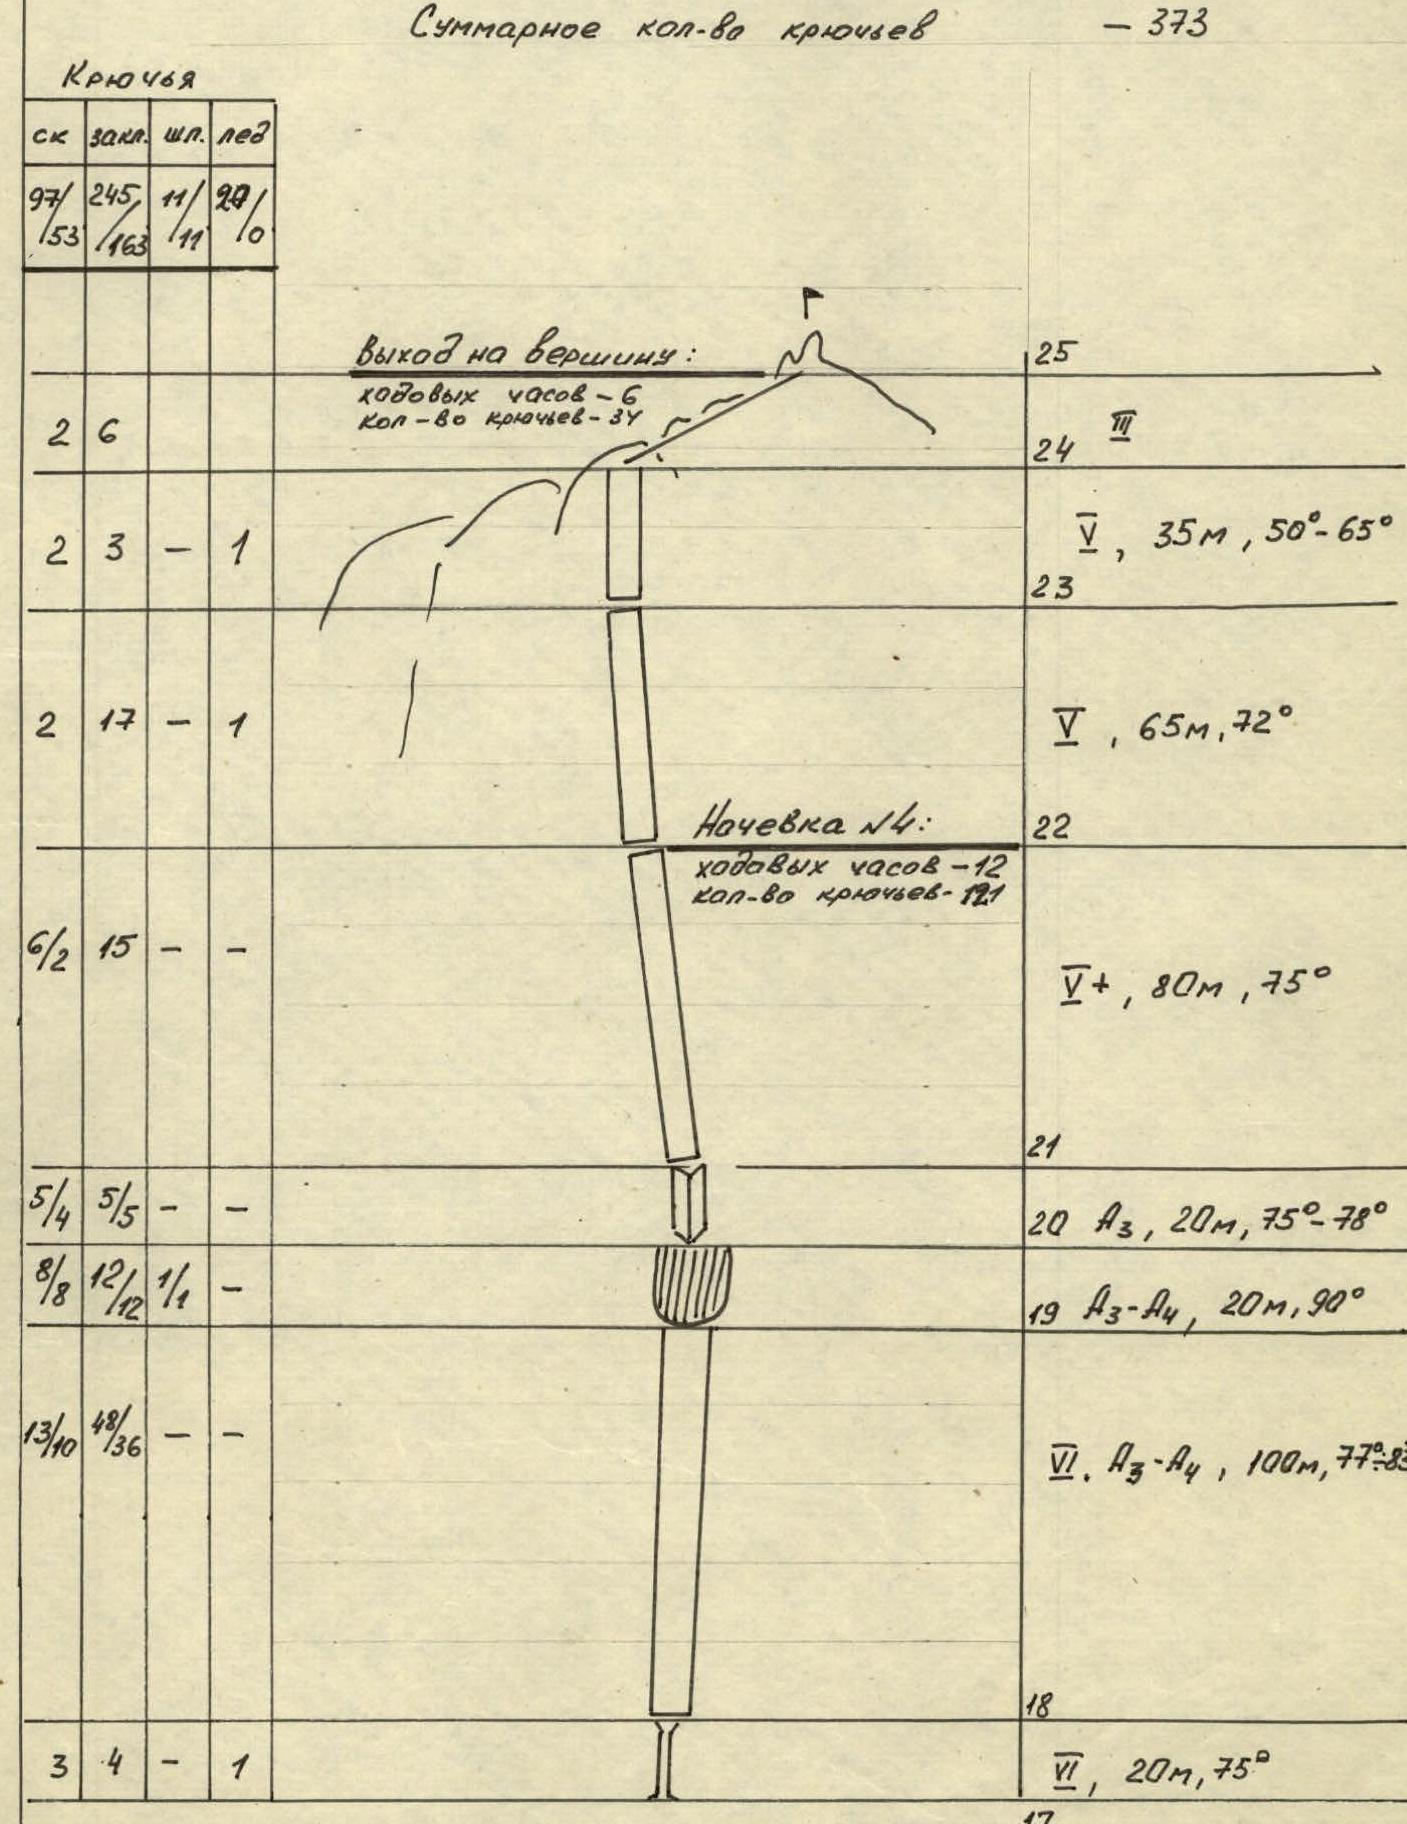 Суммарное кол-во крючьев - 373
Крючья
ск закл. шл. лед
97/53 245/163 11/11 20/0
Выход на вершину:
ходовых часов - 6
кол-во крючьев - 34
25
2 6
III
24
2 3 - 1
V, 35м, 50°-65°
23
2 17 - 1
V, 65м, 72°
Ночевка №4:
22
ходовых часов - 12
кол-во крючьев - 121
6/2 15 - -
V+, 80м, 75°
21
5/4 5/5 - -
20 А3, 20м, 75°-78°
8/8 12/12 1/1 -
19 А3-А4, 20м, 90°
13/10 48/36 - -
VI. А3-А4, 100м, 77°÷83
18
3 4 - 1
VI, 20м, 75°
17